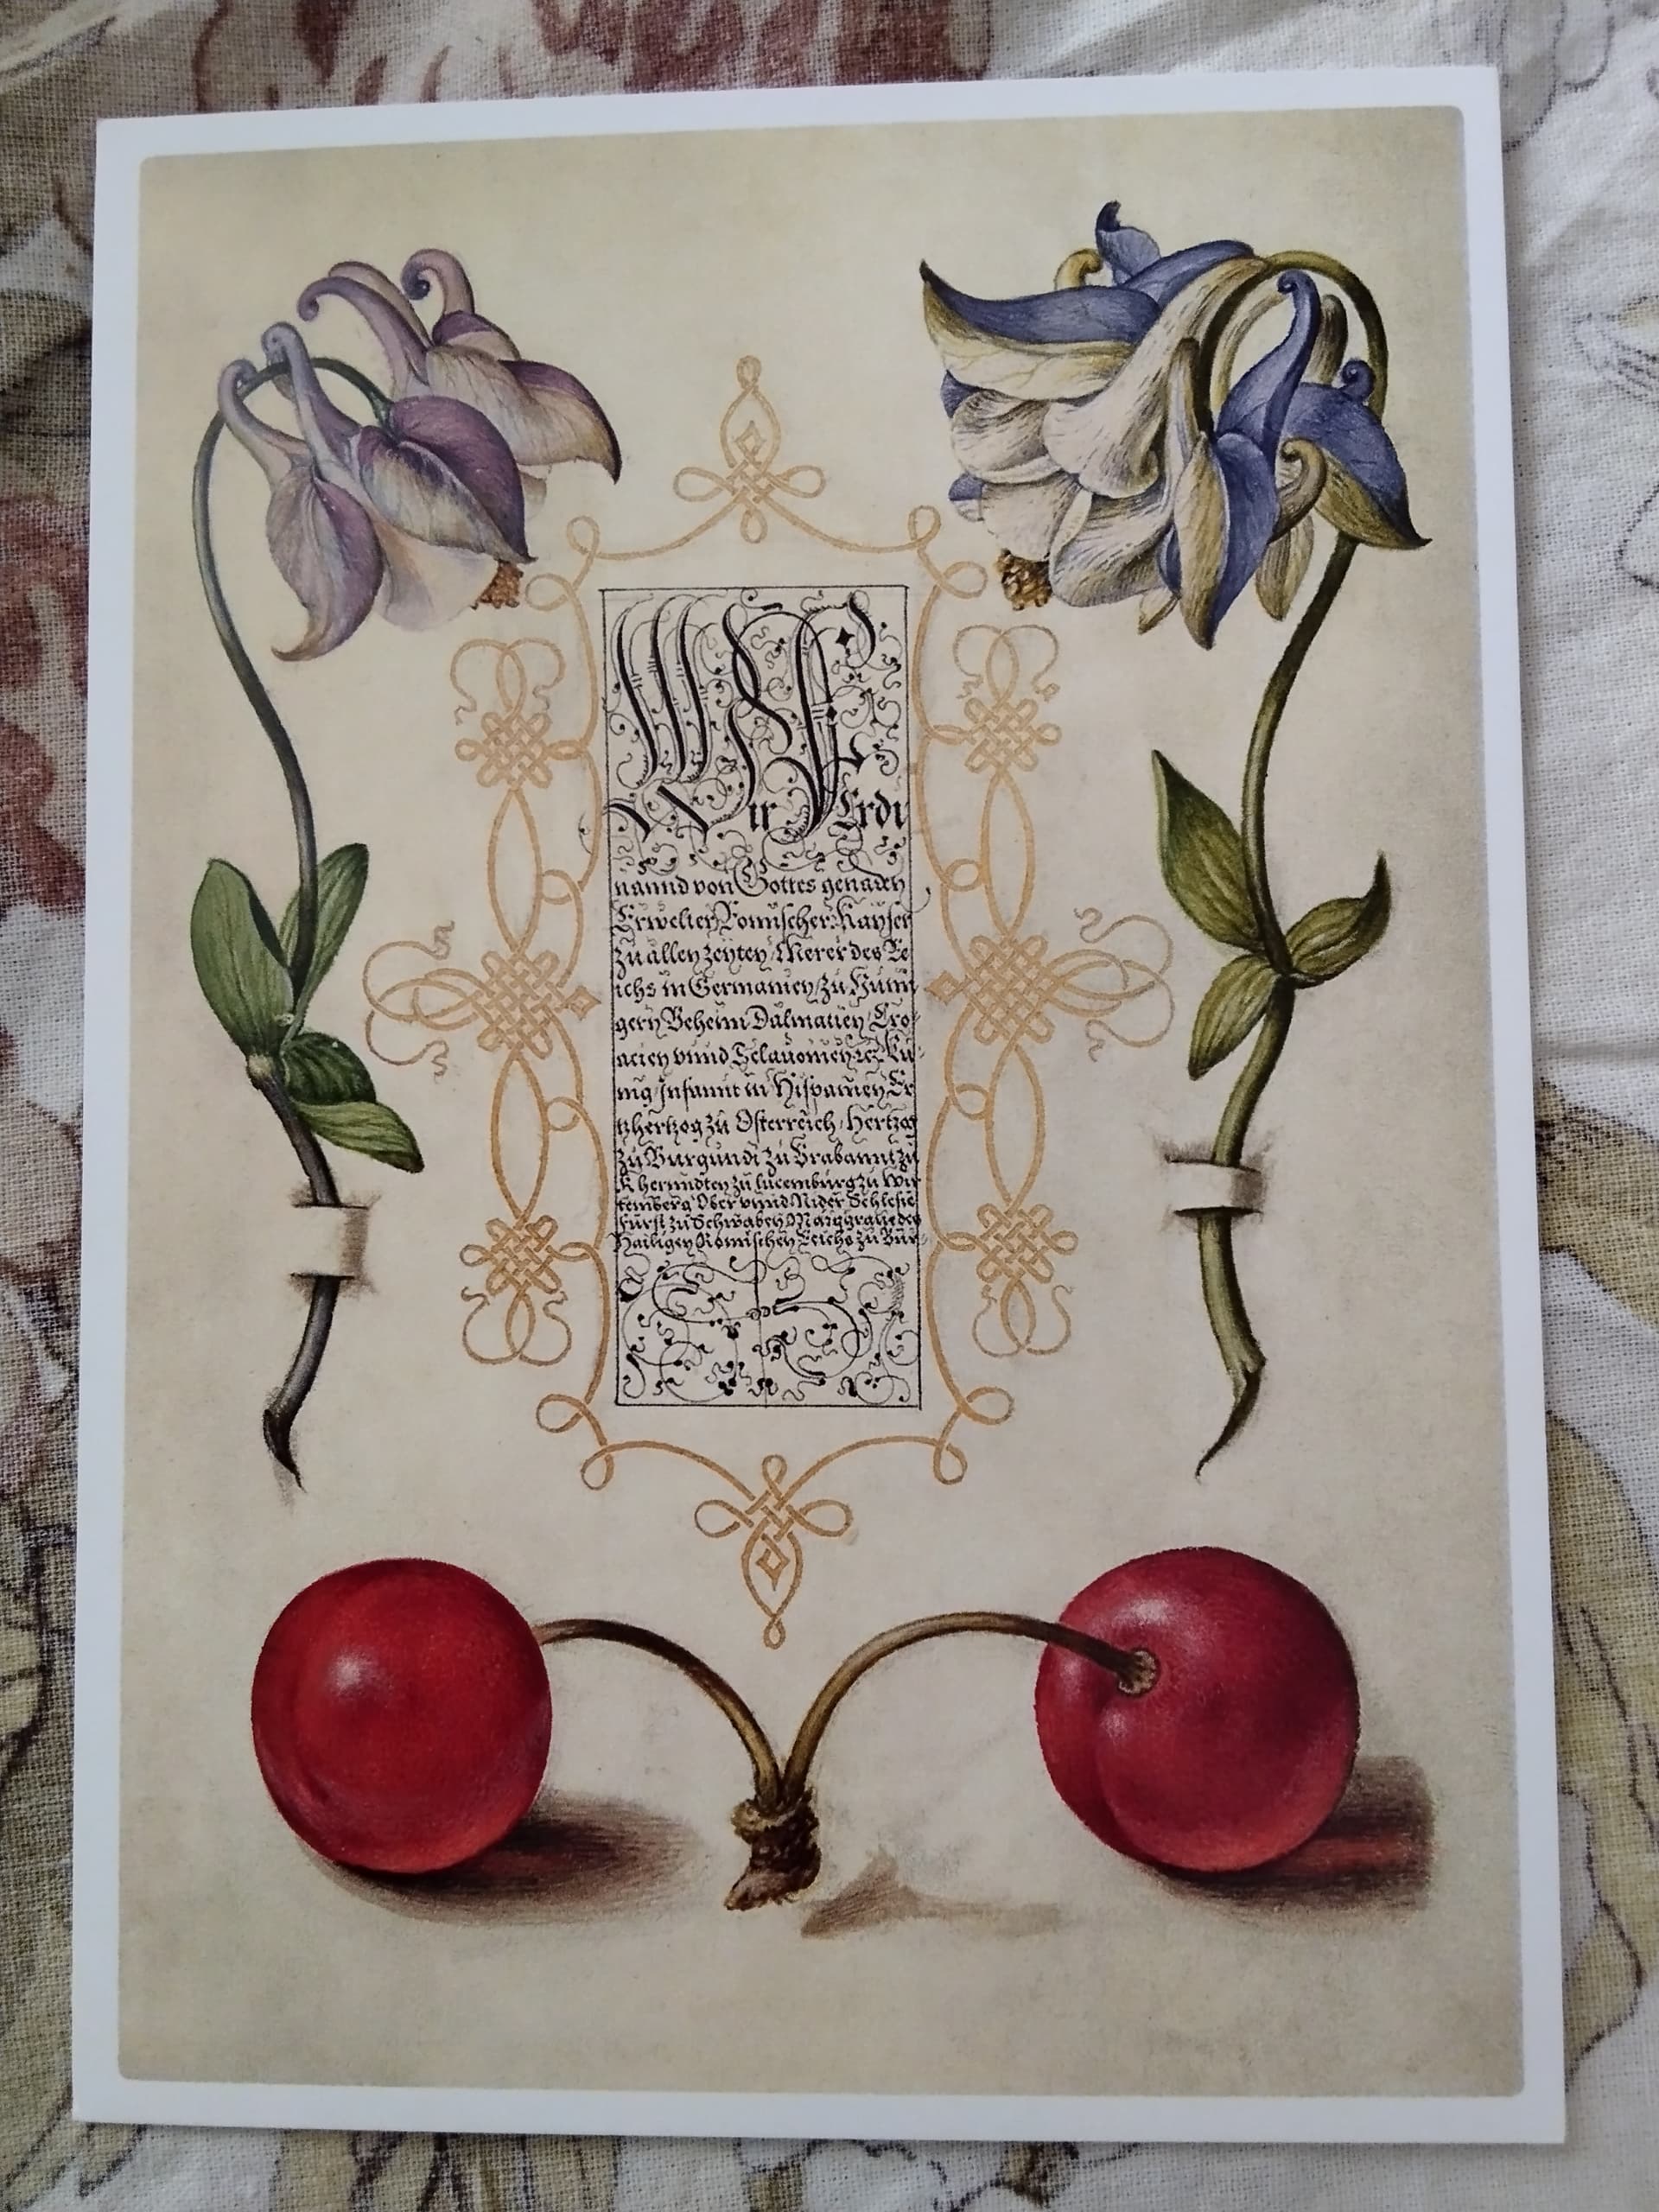 Wir Ferdi
nannd von Gottes genaden
Erwelter Romischer Kayser
zu allen zeyten Merer des Re
ichs in Germanien zu Hunn
gern Beheim Dalmatien Cro-
acien vnnd Sclauonien rc Ku-
nig Infannt in Hispanien Er
tzhertzog zu Osterreich Hertzog
zu Burgundi zu Brabannt zu
Kherundten zu lucemburg zu Wir
temberg Ober vnnd Nider Schlesie
Fürst zu Schwaben Marggraue des
Hailigen Romischen Reichs zu Bur-